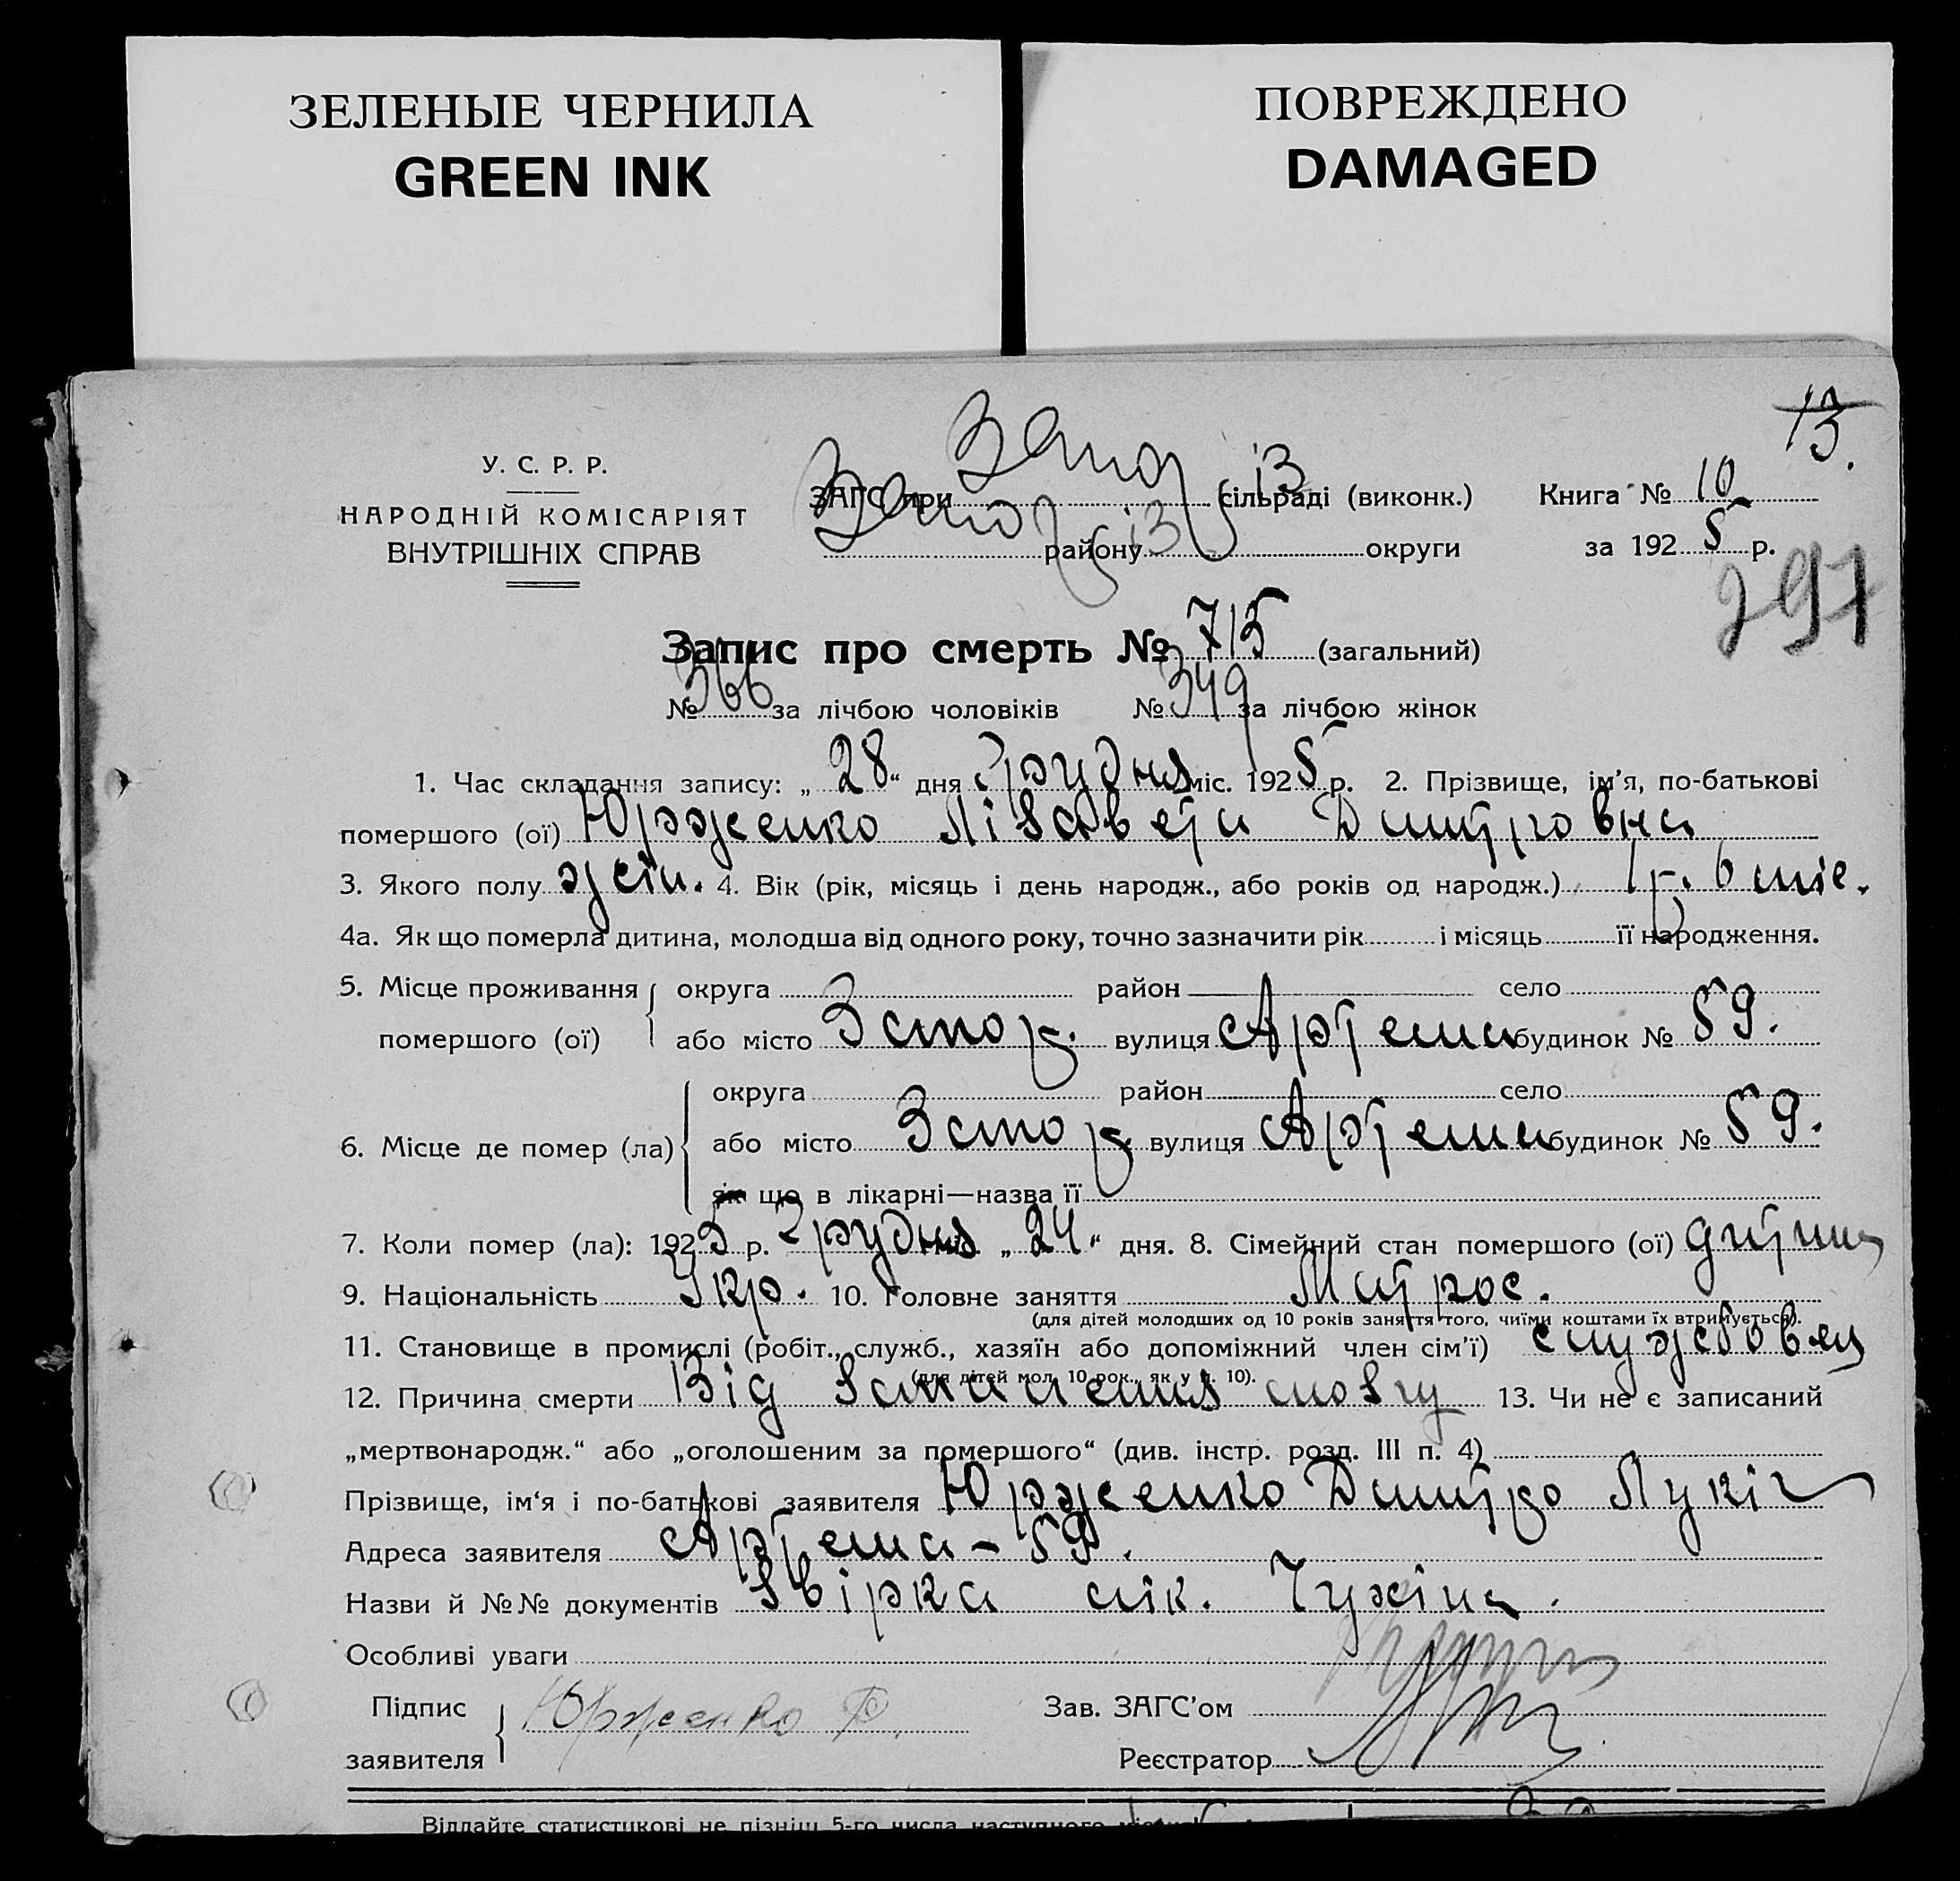 ЗЕЛЕНЫЕ ЧЕРНИЛА
GREEN INK
ПОВРЕЖДЕНО
DAMAGED
13.
У. С. Р. Р.
НАРОДНІЙ КОМІСАРІЯТ
ВНУТРІШНІХ СПРАВ
ЗАГС при Запоріз сільраді (виконк.)
Запоріз району округи
Книга № 10
за 1925 р.
297
Запис про смерть № 715 (загальний)
№ 366 за лічбою чоловіків № 349 за лічбою жінок
1. Час складання запису: „28“ дня Грудня міс. 1925 р. 2. Прізвище, ім’я, по-батькові
помершого (ої) Юрженко Лізавета Дмитровна
3. Якого полу жін. 4. Вік (рік, місяць і день народж., або років од народж.) 1 р. 6 міс.
4а. Як що померла дитина, молодша від одного року, точно зазначити рік і місяць її народження.
5. Місце проживання помершого (ої) округа район село
або місто Запор. вулиця Артема будинок № 59.
6. Місце де помер (ла) округа район село
або місто Запор. вулиця Артема будинок № 59.
як що в лікарні—назва її
7. Коли помер (ла): 1925 р. Грудня міс. „24“ дня. 8. Сімейний стан помершого (ої) дитина
9. Національність Укр. 10. Головне заняття Матрос.
(для дітей молодших од 10 років заняття того, чиїми коштами їх втримується).
11. Становище в промислі (робіт., служб., хазяїн або допоміжний член сім’ї) службовец
(для дітей мол. 10 рок., як у п. 10).
12. Причина смерти Від запаленія мозгу 13. Чи не є записаний
„мертвонародж.“ або „оголошеним за помершого“ (див. інстр. розд. III п. 4)
Прізвище, ім‘я і по-батькові заявителя Юрженко Дмитро Лукіч
Адреса заявителя Артема – 59.
Назви й №№ документів Звірка лік.
Особливі уваги
Підпис заявителя Юрженко Зав. ЗАГС’ом
Реєстратор
Віддайте статистикові не пізніш 5-го числа наступного